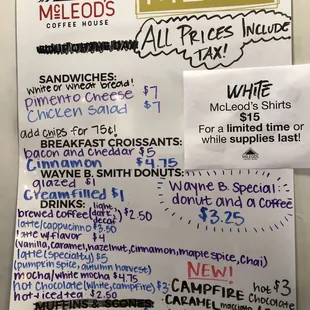 McLEOD'S
COFFEE HOUSE
ALL PRICES INCLUDE
TAX!
SANDWICHES:
white or wheat bread!
Pimento Cheese $7
Chicken Salad $7
add chips for 75¢!
WHITE
McLeod's Shirts
$15
For a limited time or
while supplies last!
BREAKFAST CROISSANTS:
bacon and cheddar $5
Cinnamon $4.75
WAYNE B. SMITH DONUTS:
glazed $1
Creamfilled $1
Wayne B. Special:
donut and a coffee
$3.25
DRINKS:
brewed coffee (light, dark, decaf) $2.50
latte/cappuccino $3.50
latte w/flavor $4
(vanilla, caramel, hazelnut, cinnamon, maple spice, chai)
latte (specialty) $5
(pumpkin spice, autumn harvest)
mocha/white mocha $4.75
hot chocolate (white, campfire) $3
hot/iced tea $2.50
NEW!
CAMPFIRE hot chocolate $3
CARAMEL macchiato
MUFFINS & SCONES: